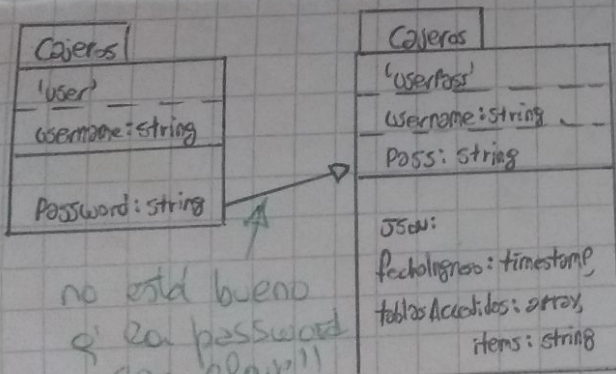 Cajeros
'user'
username: string
Password: string
no está bueno
q' la password
Cajeros
'userPass'
username: string
Pass: string
JSON:
fechaIngreso: timestamp,
tablasAccedidas: array,
items: string